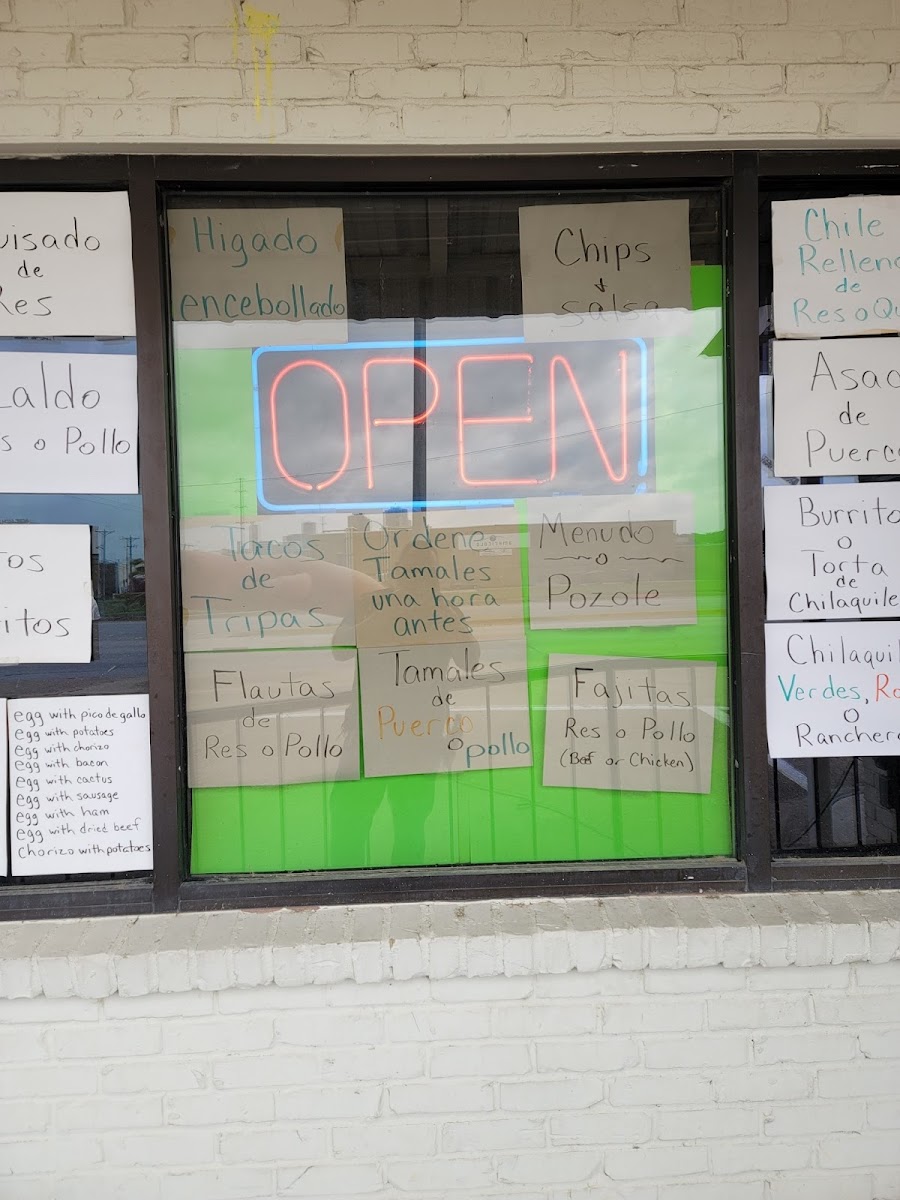 de
Caldo
o Pollo
egg with pico de gallo
egg with potatoes
egg with chorizo
egg with bacon
egg with cactus
egg with sausage
egg with ham
egg with dried beef
chorizo with potatoes
Higado
encebollado
Chips
&
salsa
OPEN
Tacos
de
Tripas
Ordene
Tamales
una hora
antes
Menudo
o
Pozole
Flautas
de
Res o Pollo
Tamales
de
Puerco
o pollo
Fajitas
Res o Pollo
(Beef or Chicken)
Chile
Relleno
de
Res o Qu
Asad
de
Puerco
Burrito
o
Torta
de
Chilaquile
Chilaquil
Verdes, Ro
o
Ranchero